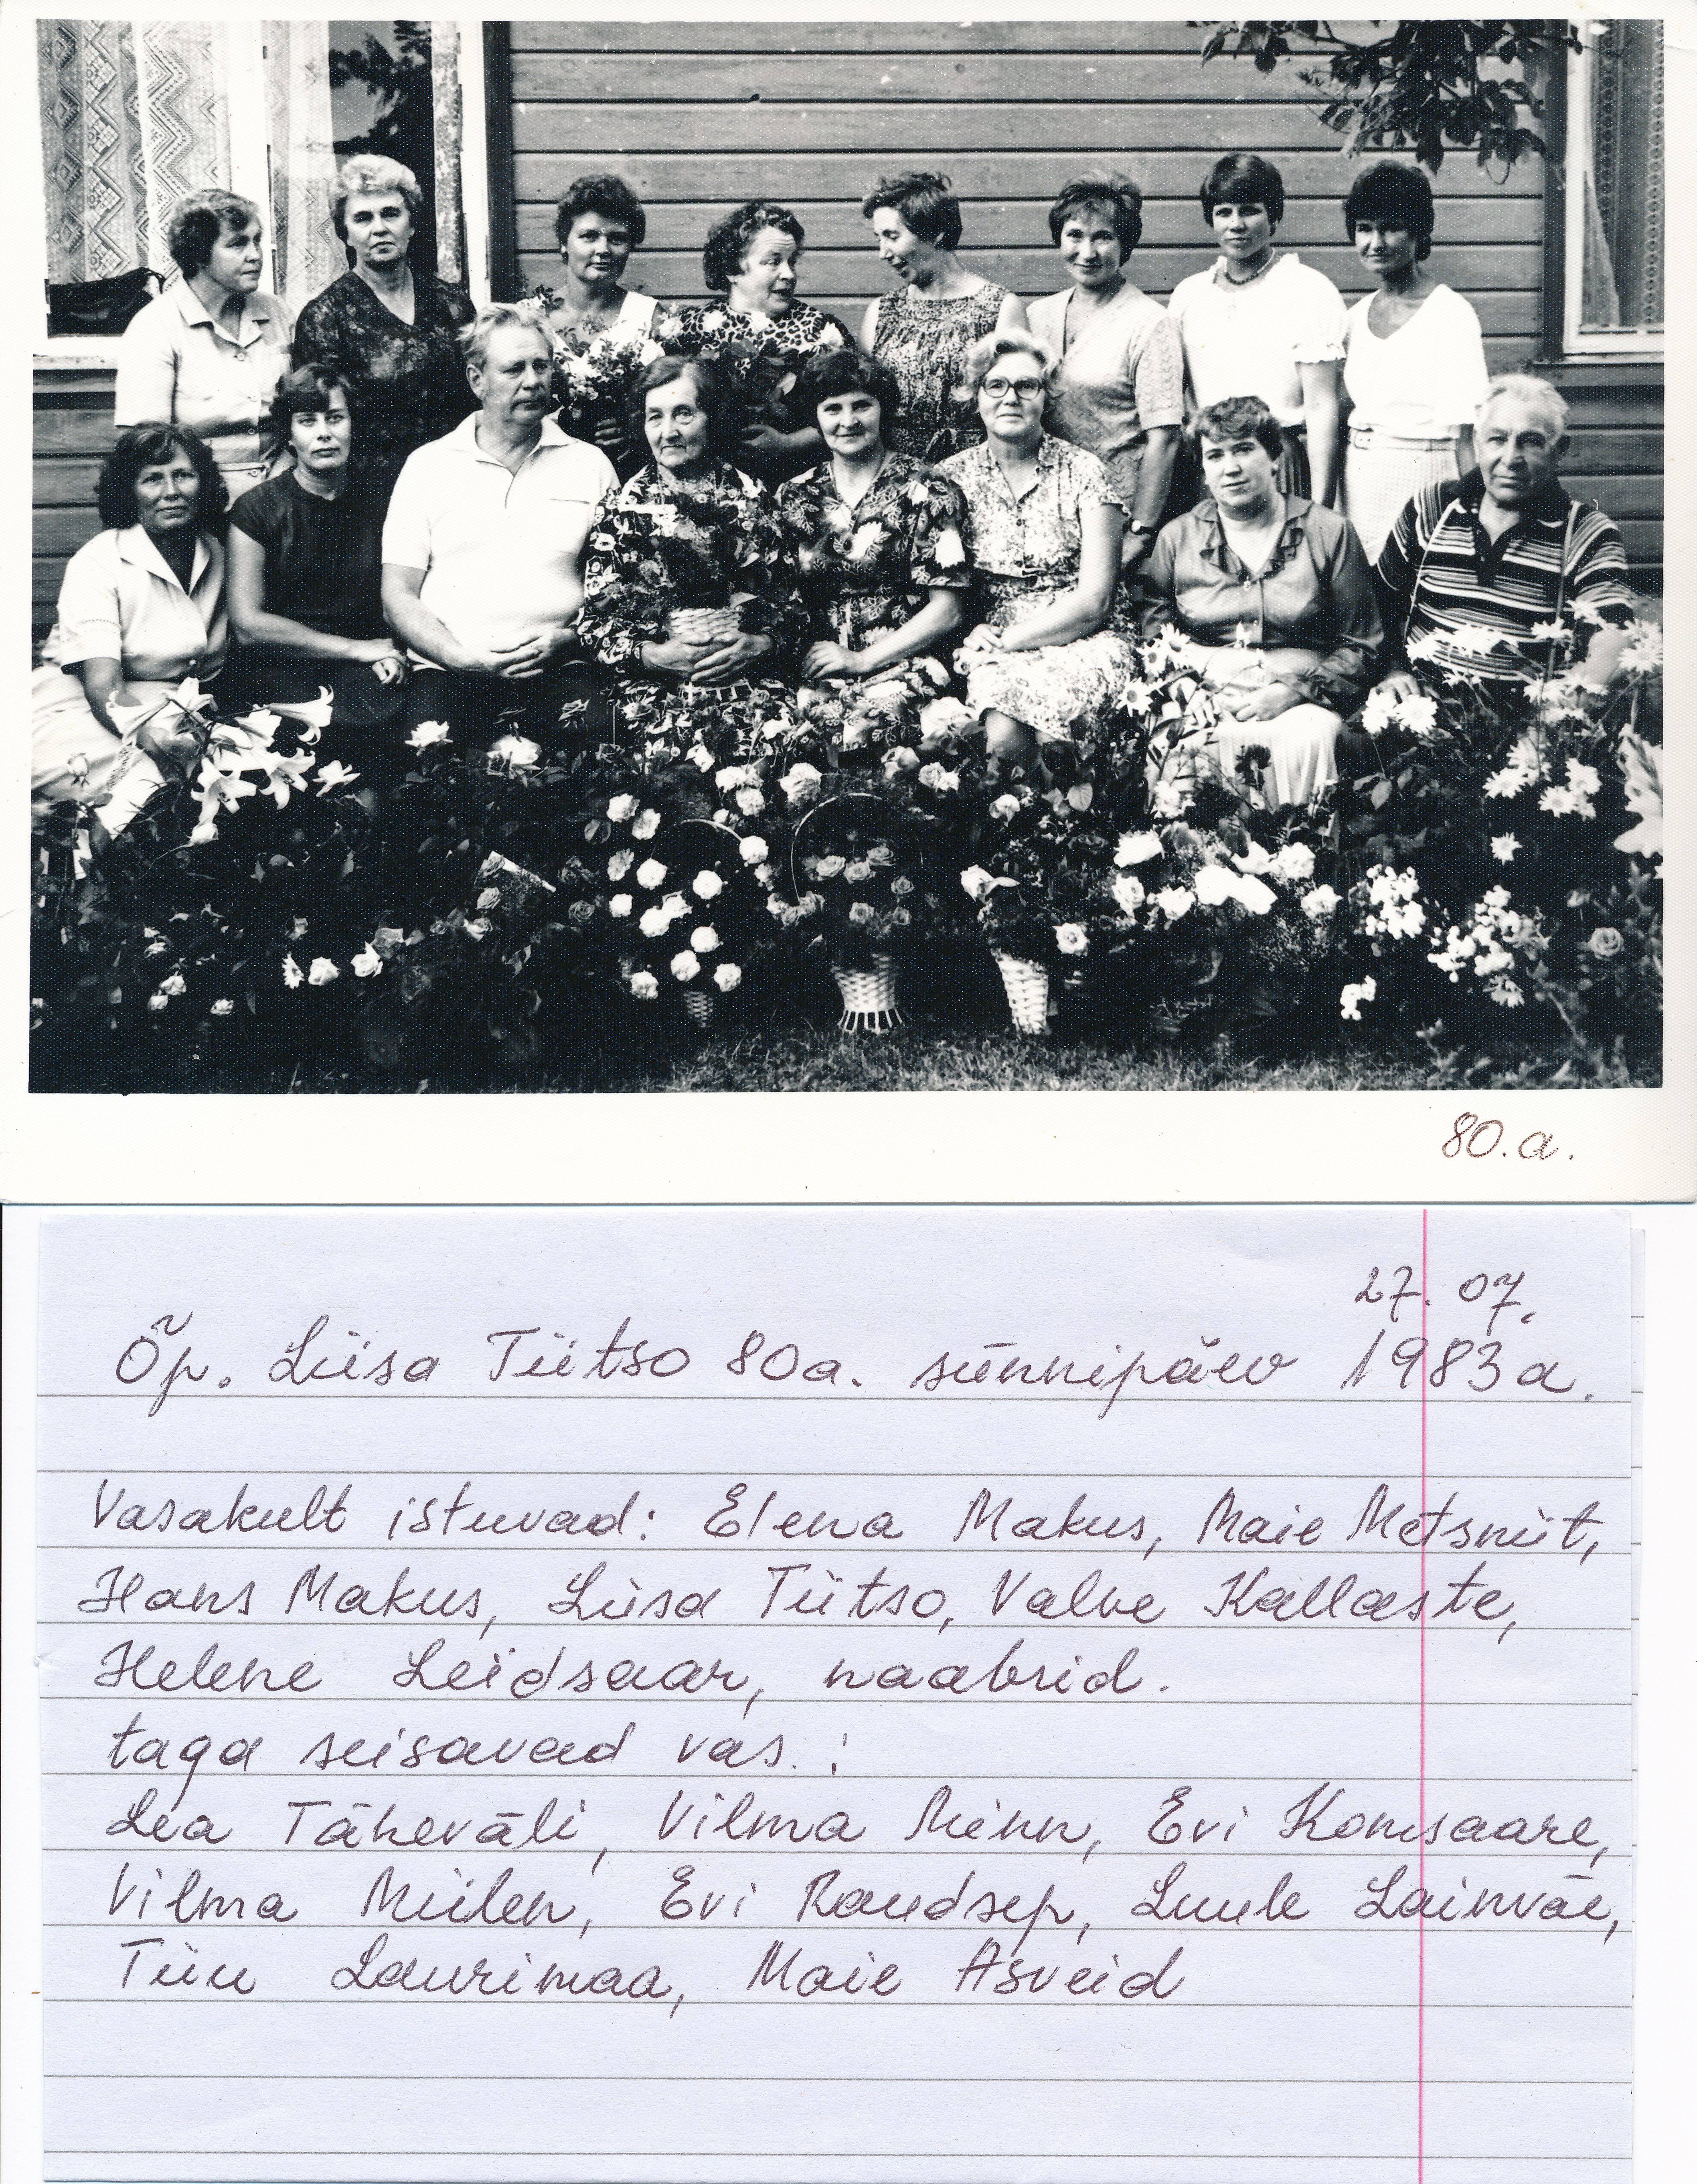 80.a.
27. 07.
Õp. Liisa Tiitso 80a. sünnipäev 1983a.
Vasakult istuvad: Elena Makus, Maie Metsniit,
Hans Makus, Liisa Tiitso, Valve Kallaste,
Helene Leidsaar, naabrid.
taga seisavad vas. :
Lea Täheväli, Vilma Minn, Evi
Vilma Miilen, Evi Raudsep, Luule Lainväe,
Tiiu Laurimaa, Maie Asveid